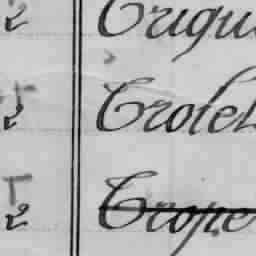 2 Crigu
T 2 Crolet
T 2 Crope